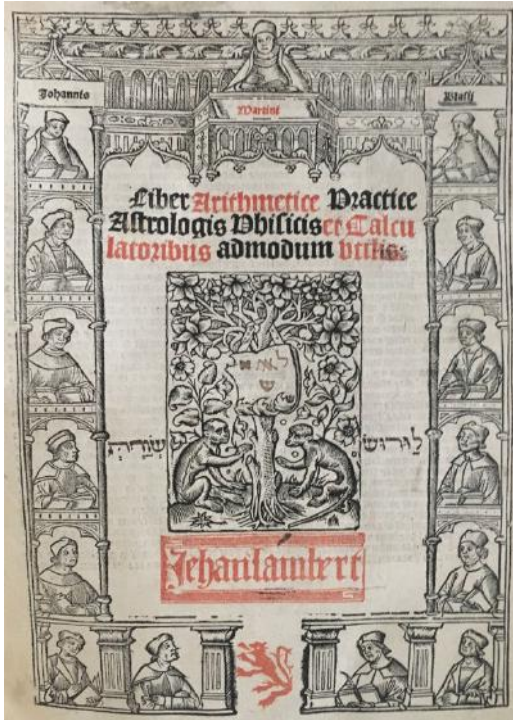 Johannis
Martini
Blasij
Liber Arithmetice Practice
Astrologis Phisicis et Calcu
latoribus admodum vtilis:
Jehan lambert